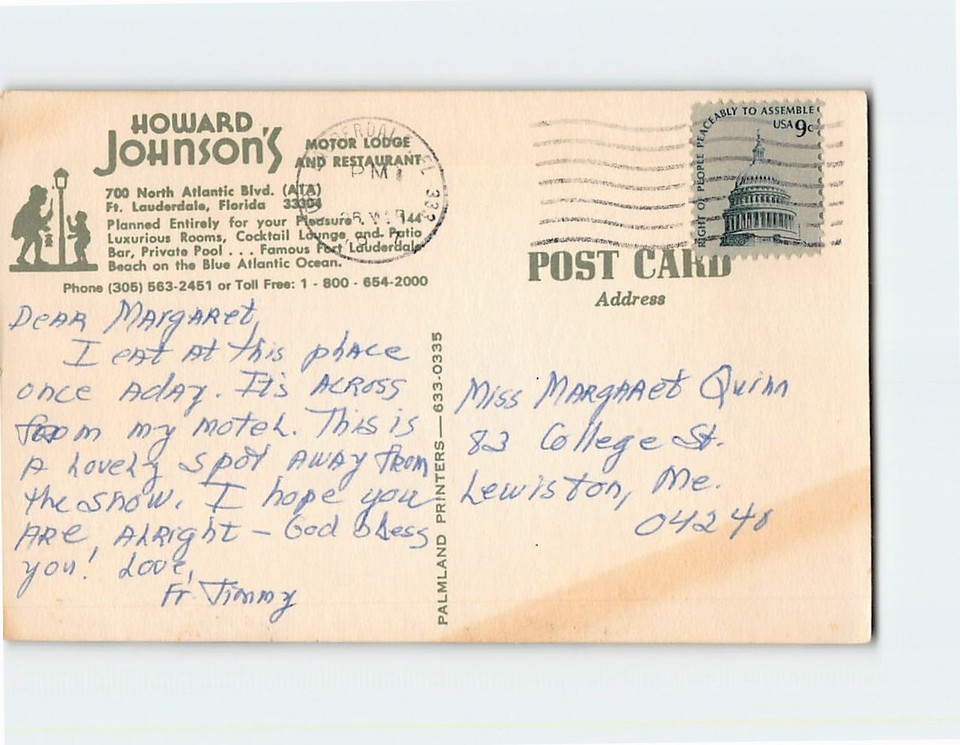 HOWARD
JOHNSON'S
MOTOR LODGE
AND RESTAURANT
700 North Atlantic Blvd. (A1A)
Ft. Lauderdale, Florida 33304
Planned Entirely for your Pleasure. 144
Luxurious Rooms, Cocktail Lounge and Patio
Bar, Private Pool . . . Famous Fort Lauderdale
Beach on the Blue Atlantic Ocean.
Phone (305) 563-2451 or Toll Free: 1 - 800 - 654-2000
PM
RIGHT OF PEOPLE PEACEABLY TO ASSEMBLE
USA 9c
POST CARD
Address
Dear Margaret,
I eat at this phace
once aday. It's across
from my motel. This is
a lovely spot away from
the snow. I hope you
are alright - God bless
you! Love,
Fr Jimmy
PALMLAND PRINTERS—633-0335
Miss Margaret Quinn
83 College St.
Lewiston, Me.
04240